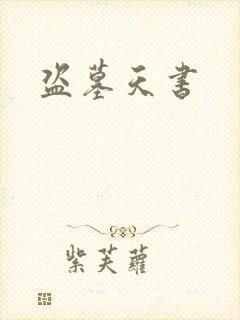 盗墓天书
紫芙蘿